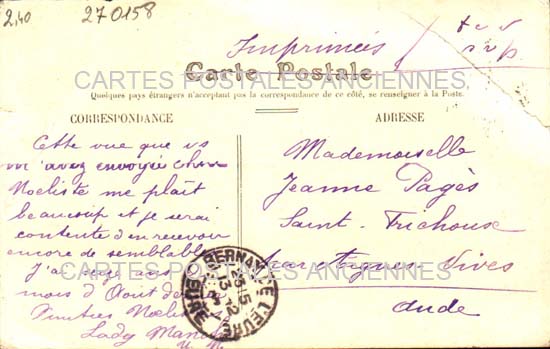 2,40
270158
Imprimés
Carte Postale
CARTES POSTALES ANCIENNES
Quelques pays étrangers n'acceptant pas la correspondance de ce côté, se renseigner à la Poste.
CORRESPONDANCE
Cette vue que vs
m'avez envoyée chère
Noéliste me plaît
beaucoup et je serai
contente d'en recevoir
encore de semblables
J'ai reçu vos
mois d'Août
Timbres
Lady
ADRESSE
Mademoiselle
Jeanne Pagès
Saint-Frichoux
par Aigues-Vives
Aude
CARTES POSTALES ANCIENNES
BERNAY DE L'EURE
EURE